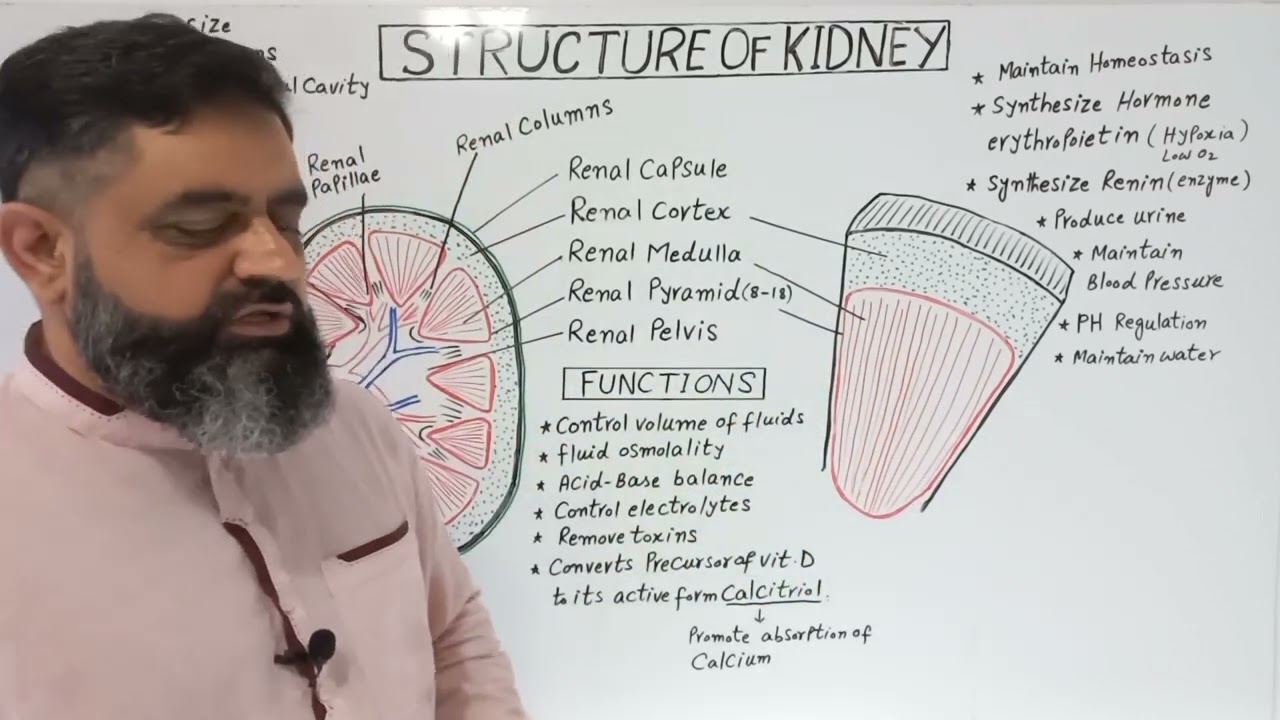 size
STRUCTURE OF KIDNEY
Cavity
Renal Columns
Renal
Papillae
Renal Capsule
Renal Cortex
Renal Medulla
Renal Pyramid (8-18)
Renal Pelvis
FUNCTIONS
* Control volume of fluids
* fluid osmolality
* Acid-Base balance
* Control electrolytes
* Remove toxins
* Converts Precursor of vit.D
to its active form Calcitriol.
↓
Promote absorption of
Calcium
* Maintain Homeostasis
* Synthesize Hormone
erythropoietin (Hypoxia)
Low O2
* Synthesize Renin (enzyme)
* Produce urine
* Maintain
Blood Pressure
* PH Regulation
* Maintain water